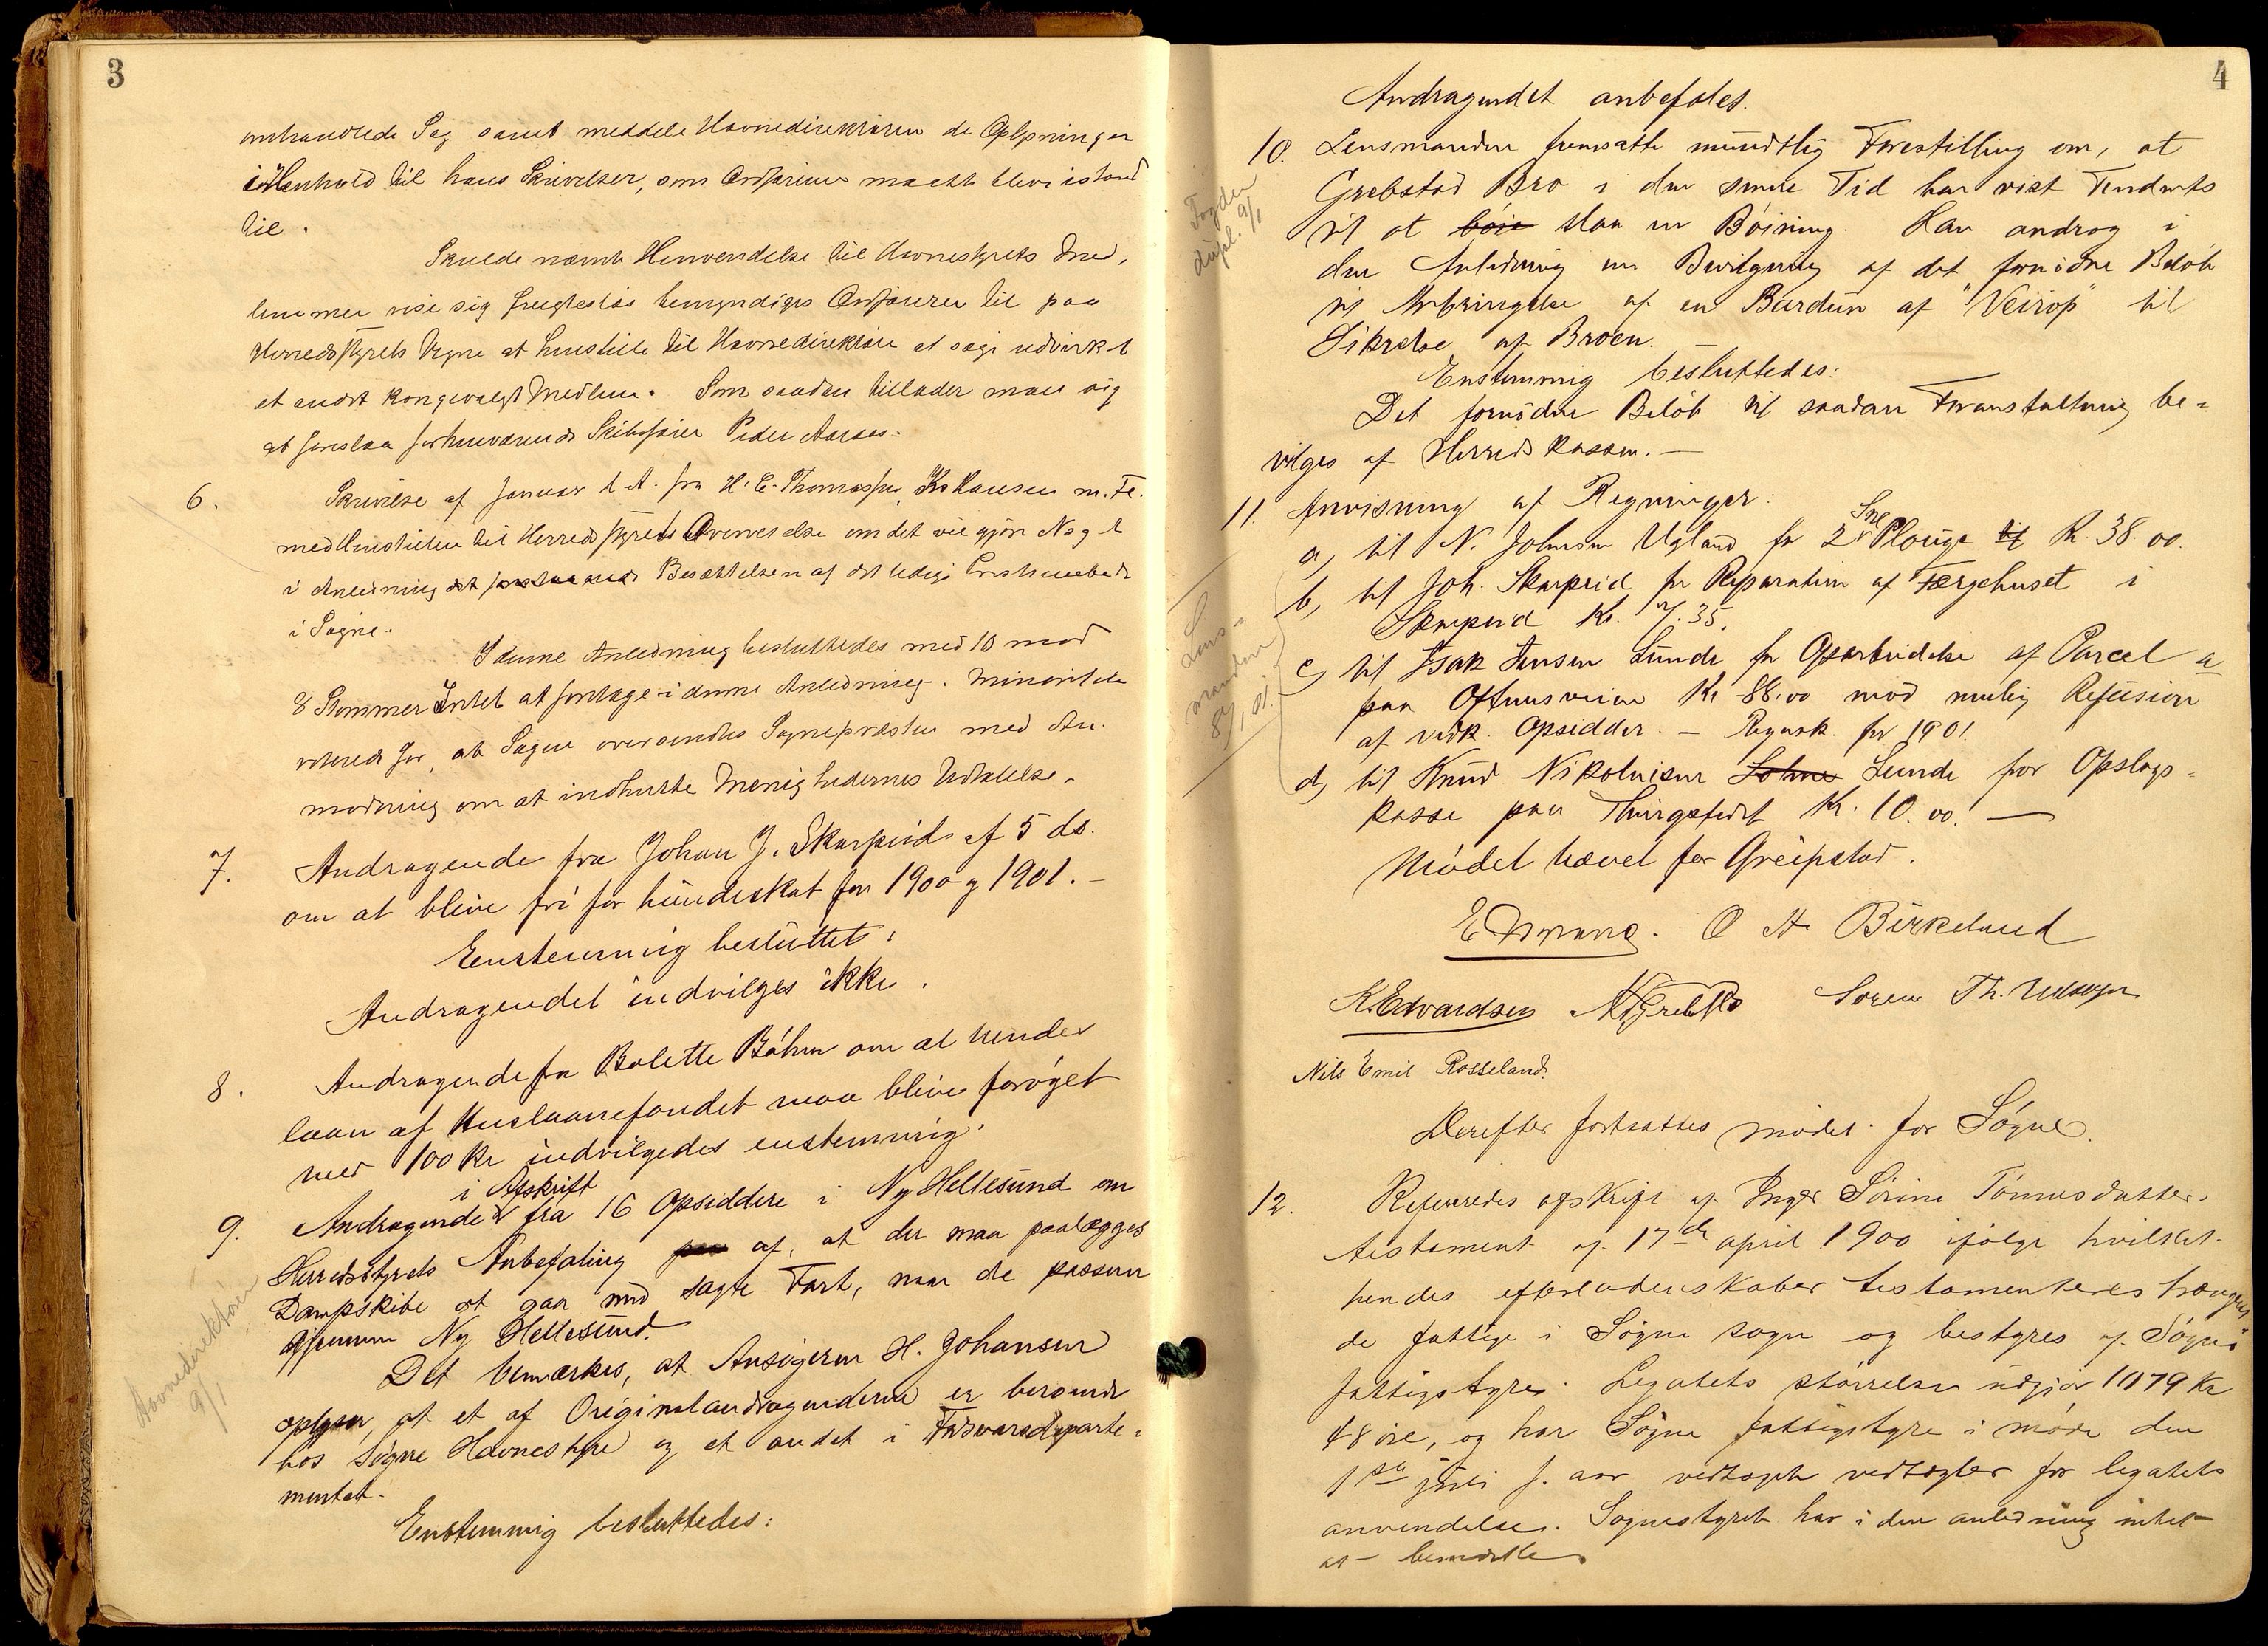 3
omhandlede Sag samt meddele Havnedirektøren de Oplysninger
i Henhold til hans Skrivelser, som Ordføreren maatte blive istand
til.
Skulde nævnte Henvendelse til Havnestyrets Med-
lemmer vise sig frugtesløs bemyndiges Ordføreren til paa
Herredsstyrets Vegne at henstille til Havnedirektøren at søge udvirket
et andet kongevalgt Medlem. Som saadan tillader man sig
at foreslaa forhenværende Skibsfører Peder Aaraas.
6.
Skrivelse af Januar d. A. fra H. E. Thomassen, Ks Hansen m. Fl.
med Henstillen til Herredsstyrets Overveielse om det vil gjøre Noget
i Anledning det Besættelsen af det ledige Presteembede
i Søgne.
I denne Anledning besluttedes med 10 mod
8 Stemmer Intet at foretage i denne Anledning. Minoriteten
voterede for, at Sagen oversendtes Sognepræsten med An-
modning om at indhente Menighedernes Udtalelse.
7.
Andragende fra Johan J. Skarpeid af 5 ds.
om at blive fri for hundeskat for 1900 og 1901. -
Eenstemmig besluttet:
Andragendet indvilges ikke.
8.
Andragende fra Bolette Böhm om at hendes
laan af Huslaanefondet maa blive forøget
med 100 Kr indvilgedes enstemmig.
i Afskrift
9. Andragende fra 16 Opsiddere i Ny Hellesund om
Herredsstyrets Anbefaling paa af, at der maa paalægges
Dampskibe at gaa med sagte Fart, naar de passerer
gjennem Ny Hellesund.
Havnedirektøren
9/1
Det bemærkes, at Ansøgeren H. Johansen
oplyser, at et af Originalandragenderne er beroende
hos Søgne Havnestyre og et andet i Forsvarsdeparte-
mentet.
Enstemmig besluttedes:
4
Andragendet anbefales.
10. Lensmanden fremsatte mundtlig Forestilling om, at
Grebstad Bro i den senere Tid har vist Tendents
til at böie slaa en Böining. Han androg i
den Anledning om Bevilgning af det fornödne Beløb
til Anbringelse af en Bardun af "Veirop" til
Sikrelse af Broen.
Fogden
dupl. 9/1
Enstemmig besluttedes:
Det fornödne Belöb til saadan Foranstaltning be-
vilges af Herredskassen. -
11. Anvisning af Regninger:
Sne
a, til N. Johnsen Ugland for 2 Plouge til Kr. 38.00.
b, til Joh. Skarpeid for Reparation af Færgehuset i
Skarpeid Kr. 7.35.
c, til Isak Jensen Lunde for Oparbeidelse af Parcel a
paa Oftenesveien Kr 88.00 mod mulig Refusion
af vedk. Opsidder. - Regnsk. for 1901.
d, til Knud Nikolaisen Sohne Lunde for Opslags-
kasse paa Thingstedet Kr. 10.00. -
Lens-
manden
8/1 01.
Mödet hævet for Greipstad.
O A Birkeland
K. Edvardsen
Sören Th.
Nils Emil Rosseland.
Derefter fortsattes mödet for Søgne.
12. Refereredes afskrift af Inger Sörine Tönnesdatters
testament af 17de april 1900 ifölge hvilket
hendes efterladenskaber testamenteres trængen
de fattige i Søgne sogn og bestyres af Søgne
fattigstyre. Legatets størrelse udgjør 1079 Kr
48 öre, og har Søgne fattigstyre i møde den
1ste juli f. aar vedtaget vedtægter for legatets
anvendelse. Sognestyret har i den anledning intet
at bemærke.